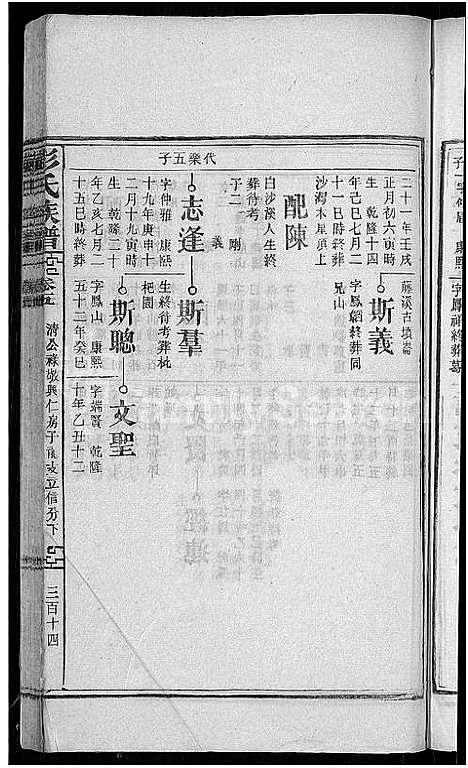 二十一年壬戌
正月初六寅時
生 乾隆十四
年己巳七月二
十一日終葬
沙灣木星頂上
配陳
白沙溪人生終
葬待考
子二 剛
義
代樂五子
志逢
字仲雅 康熙
十九年庚申十
二月十九寅時
生 乾隆二十
年乙亥七月二
十五巳時終葬
藤溪古墳崙
斯義
字鳳韜終葬同
兄山
斯羣
生終待考葬枇
杷園
斯聰
字鳳山 康熙
五十二年癸巳
文聖
字端賢 乾隆
十年乙丑十二
彭氏族譜
清公祿敬興仁房子龍支立信分下
三百十四